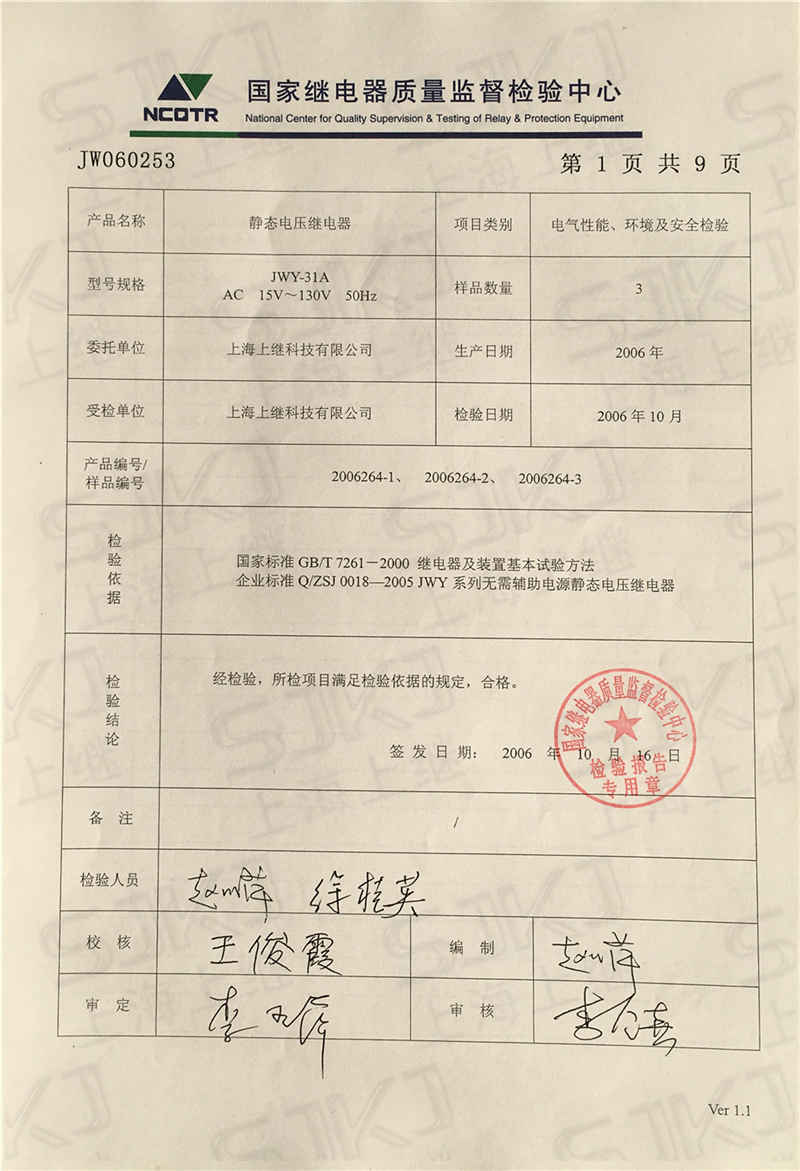 NCQTR
国家继电器质量监督检验中心
National Center for Quality Supervision & Testing of Relay & Protection Equipment
JW060253
第 1 页 共 9 页
产品名称 静态电压继电器 项目类别 电气性能、环境及安全检验
型号规格 JWY-31A
AC 15V～130V 50Hz 样品数量 3
委托单位 上海上继科技有限公司 生产日期 2006 年
受检单位 上海上继科技有限公司 检验日期 2006 年 10 月
产品编号/
样品编号 2006264-1、 2006264-2、 2006264-3
检验依据
国家标准 GB/T 7261－2000 继电器及装置基本试验方法
企业标准 Q/ZSJ 0018—2005 JWY 系列无需辅助电源静态电压继电器
检验结论
经检验，所检项目满足检验依据的规定，合格。
签 发 日 期： 2006 年 10 月 16 日
国家继电器质量监督检验中心
检验报告
专用章
备 注 /
检验人员 徐桂英
校 核 王俊霞 编 制
审 定 审 核
Ver 1.1